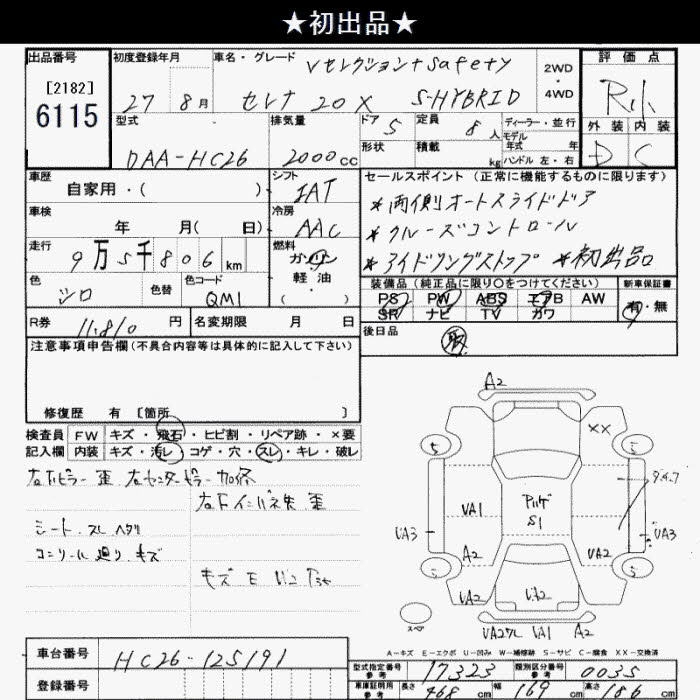 ★初出品★
出品番号
[2182]
6115
初度登録年月
27 8月
車名・グレード
Vセレクション+Safety
セレナ 20X S-HYBRID
2WD
・
4WD
評価点
外装 内装
D C
型式
DAA-HC26
排気量
2000cc
ドア 5
形状
定員 8人
積載 kg
ディーラー・並行
モデル
年式 年
ハンドル 左・右
車歴
自家用・( )
シフト
IAT
車検
年 月( 日)
冷房
AAC
走行
9万5千806km
燃料
ガソリン
軽油
・( )
色
シロ
色替
色コード
QM1
R券 11,810円
名変期限 月 日
セールスポイント(正常に機能するものに限ります)
*両側オートスライドドア
*クルーズコントロール
*アイドリングストップ *初出品
装備品(純正品に限り○をつけてください)
PS PW ABS エアB AW
SR ナビ TV カワ
新車保証書
有・無
後日品
取
注意事項申告欄(不具合内容等は具体的に記入して下さい)
修復歴 有 [箇所 ]
検査員
記入欄
FW キズ・飛石・ヒビ割・リペア跡・×要
内装 キズ・汚レ・コゲ・穴・スレ・キレ・破レ
右Fピラー歪 右センターピラー加修
右Fインパネ先 歪
シート スレ ヘタリ
コンソール廻り キズ
A2
XX
5
5
UA1
S1
UA3
UA3
A2
UA2
5
5
UA2
A2
UA1
A2
スペア
A-キズ E-エクボ U-凹み W-補修跡 S-サビ C-腐食 XX-交換済
車台番号
HC26-125191
登録番号
型式指定番号
参考
17323
類別区分番号
参考
0035
車庫証明用
参考
長さ 468cm
幅 169cm
高さ 186cm